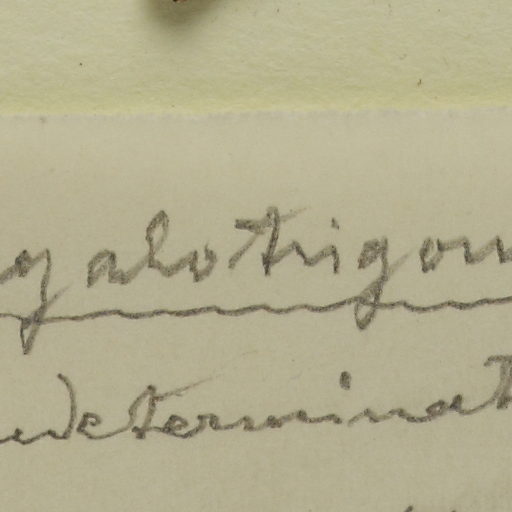 yalotrigon
ndeterminat